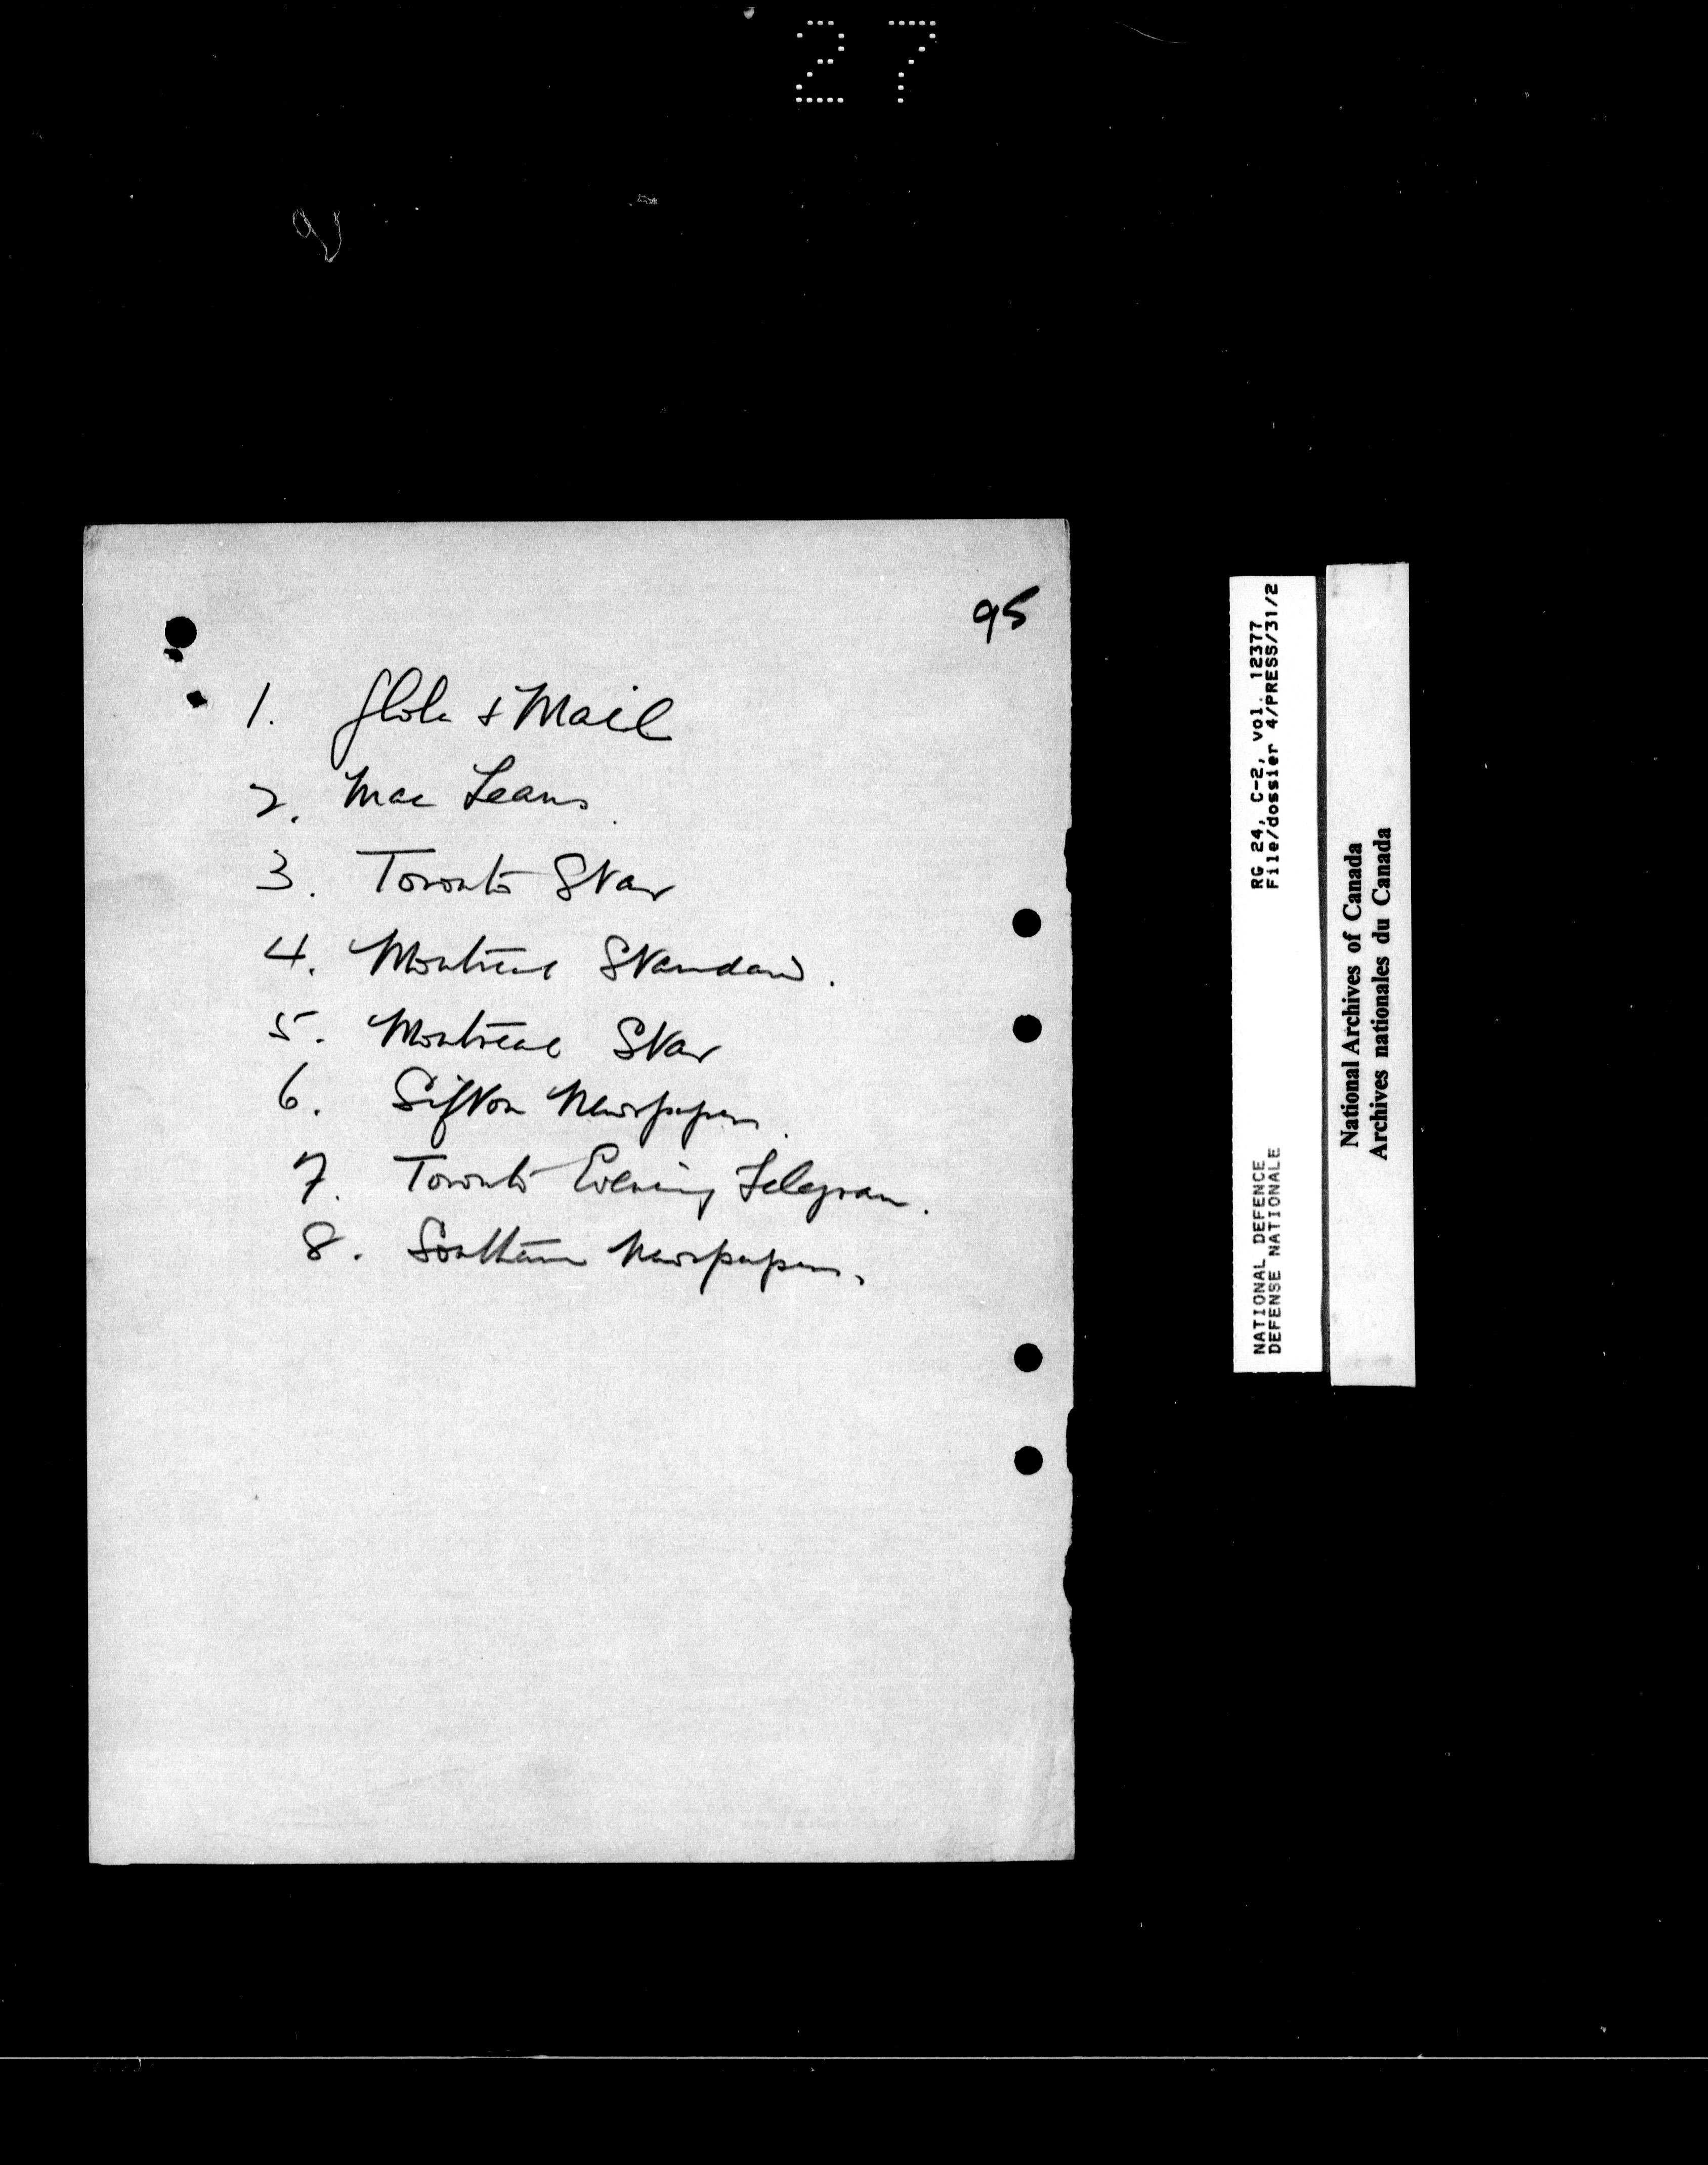 27
95
1. Globe & Mail
2. Mac Leans
3. Toronto Star
4. Montreal Standard.
5. Montreal Star
6. Sifton Newspapers.
7. Toronto Evening Telegram.
8. Southam Newspapers.
RG 24, C-2, vol. 12377
File/dossier 4/PRESS/31/2
NATIONAL DEFENCE
DEFENSE NATIONALE
National Archives of Canada
Archives nationales du Canada